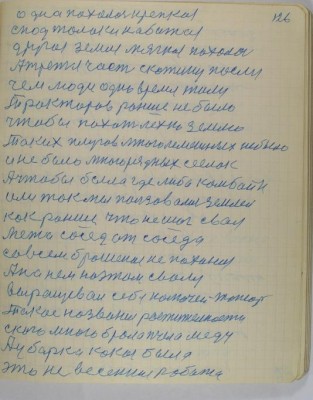 126
одна пахалась крепкая
с под толаки кабажая
другая земля мягкая пахалась
А трети част скотину пасли
чем люди одно время жили
Тракторов ранше небыло
чтобы пахат лехко землю
Таких плугов многолемешных небыло
и не было многорядных сеелок
А чтобы была где либа комбайн
или так мы ползовалис землей
как ранше что не мог свая
Межа сосед от соседа
совсем брошеная не паханая
Ана нем поэтом
выращевал себе
Такое названия растителности
с кто много брала пчела меду
А убарка какая была
это не весення работа